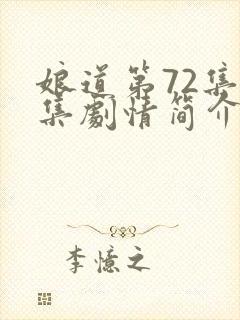 娘道第72集
集劇情简介
李憶之